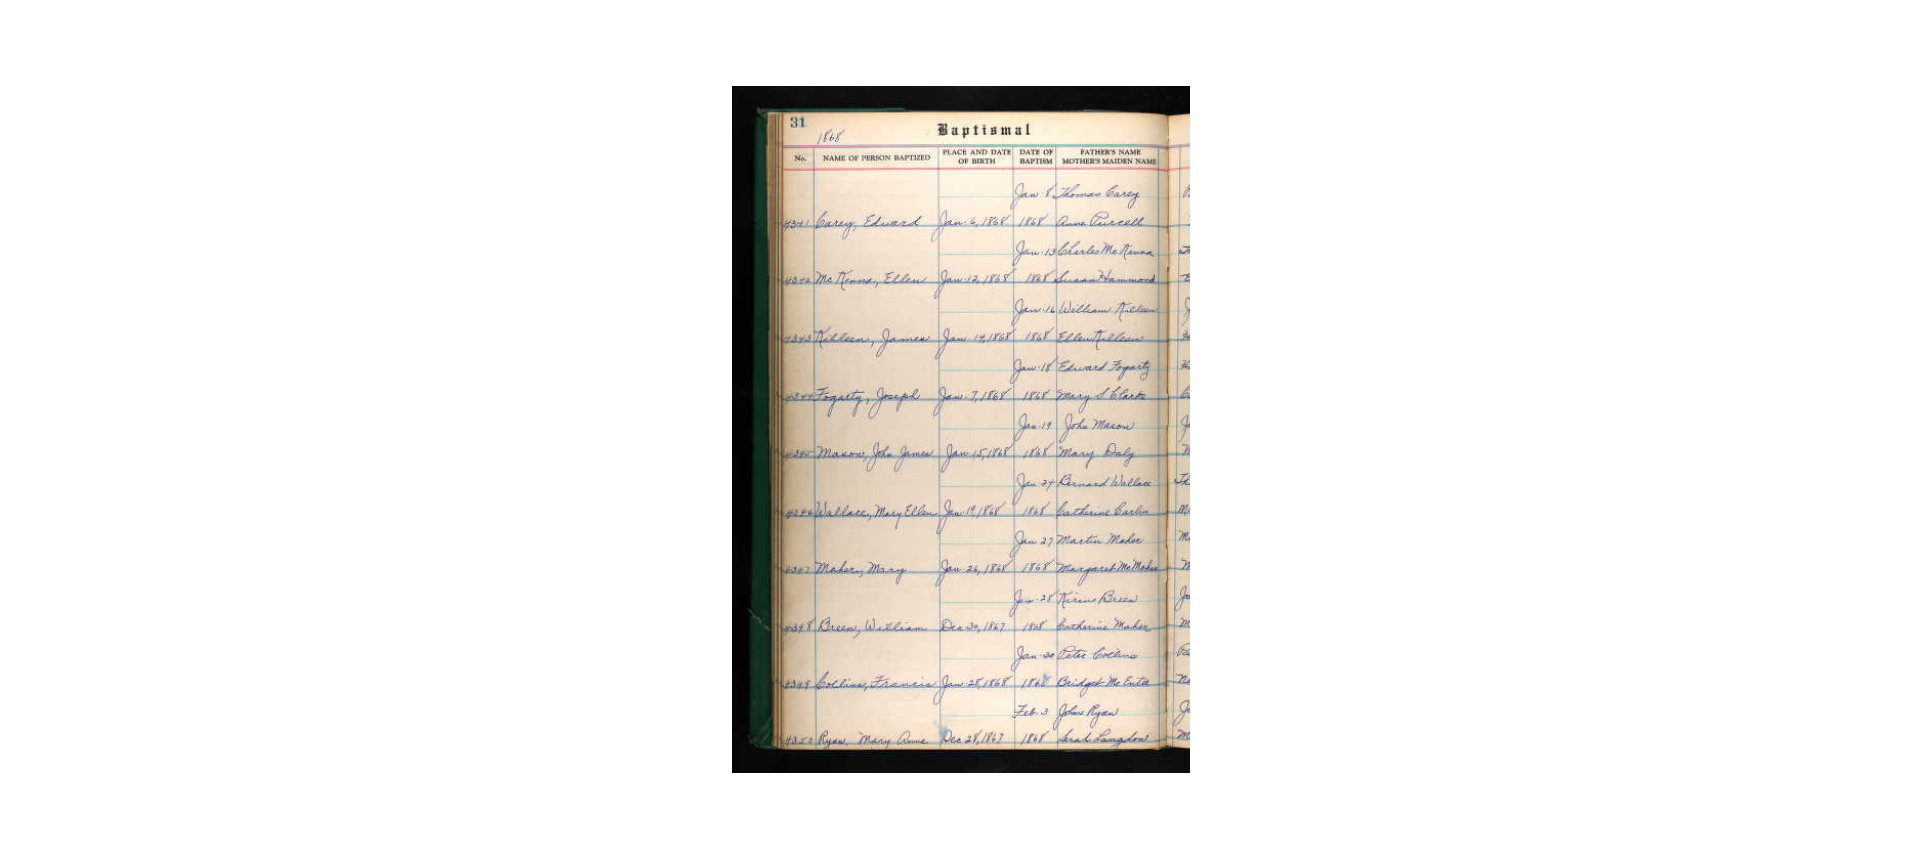 31
1868
Baptismal
No. NAME OF PERSON BAPTIZED PLACE AND DATE OF BIRTH DATE OF BAPTISM FATHER'S NAME MOTHER'S MAIDEN NAME
Jan 8 Thomas Carey
4341 Carey, Edward Jan. 6, 1868 1868 Anne Purcell
Jan. 13 Charles McKenna
4342 McKenna, Ellen Jan. 12, 1868 1868 Susan Hammond
Jan. 16 William Killeen
4343 Killeen, James Jan. 14, 1868 1868 Ellen Killeen
Jan. 18 Edward Fogarty
4344 Fogarty, Joseph Jan. 7, 1868 1868 Mary S Clarke
Jan. 19 John Mason
4345 Mason, John James Jan 15, 1868 1868 Mary Daly
Jan. 24 Bernard Wallace
4346 Wallace, Mary Ellen Jan. 19, 1868 1868 Catherine Carlin
Jan 27 Martin Maher
4347 Maher, Mary Jan. 26, 1868 1868 Margaret
Jan. 28 Breen
4348 Breen, William Dec 30, 1867 1868 Catherine Maher
Jan. 30 Peter Collins
4349 Collins, Francis Jan. 28, 1868 1868 Bridget
Feb. 3 John Ryan
4350 Ryan, Mary Anne Dec 28, 1867 1868 Sarah Langdon